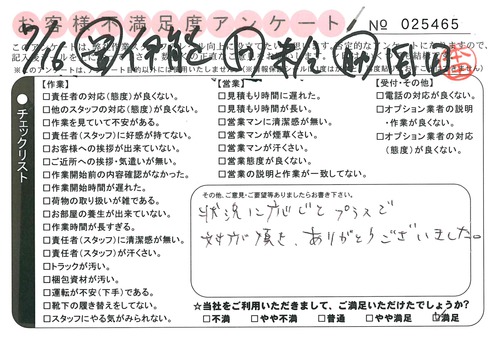 お客様不満足度アンケート
No 025465
チェックリスト
【作業】
□責任者の対応(態度)が良くない。
□他のスタッフの対応(態度)が良くない。
□作業を見ていて不安がある。
□責任者(スタッフ)に好感が持てない。
□お客様への挨拶が出来ていない。
□ご近所への挨拶・気遣いが無い。
□作業前の内容確認がなかった。
□作業開始時間が遅れた。
□荷物の取り扱いが雑である。
□お部屋の養生が出来ていない。
□作業時間が長すぎる。
□責任者(スタッフ)に清潔感が無い。
□責任者(スタッフ)が汗くさい。
□トラックが汚い。
□梱包資材が汚い。
□運転が不安(下手)である。
□靴下の履き替えをしてない。
□スタッフにやる気がみられない。
【営業】
□見積もり時間に遅れた。
□見積もり時間が長い。
□営業マンに清潔感が無い。
□営業マンが煙草くさい。
□営業マンが汗くさい。
□営業態度が良くない。
□営業の説明と作業が一致してない。
【受付・その他】
□電話の対応が良くない。
□オプション業者の説明
・作業が良くない。
□オプション業者の対応
(態度)が良くない。
その他、ご意見・ご要望等ありましたらお書き下さい。
状況に応じてプラスで
対応頂き、ありがとうございました。
☆当社をご利用いただきまして、ご満足いただけたでしょうか?
□不満 □やや不満 □普通 □やや満足 ☑満足